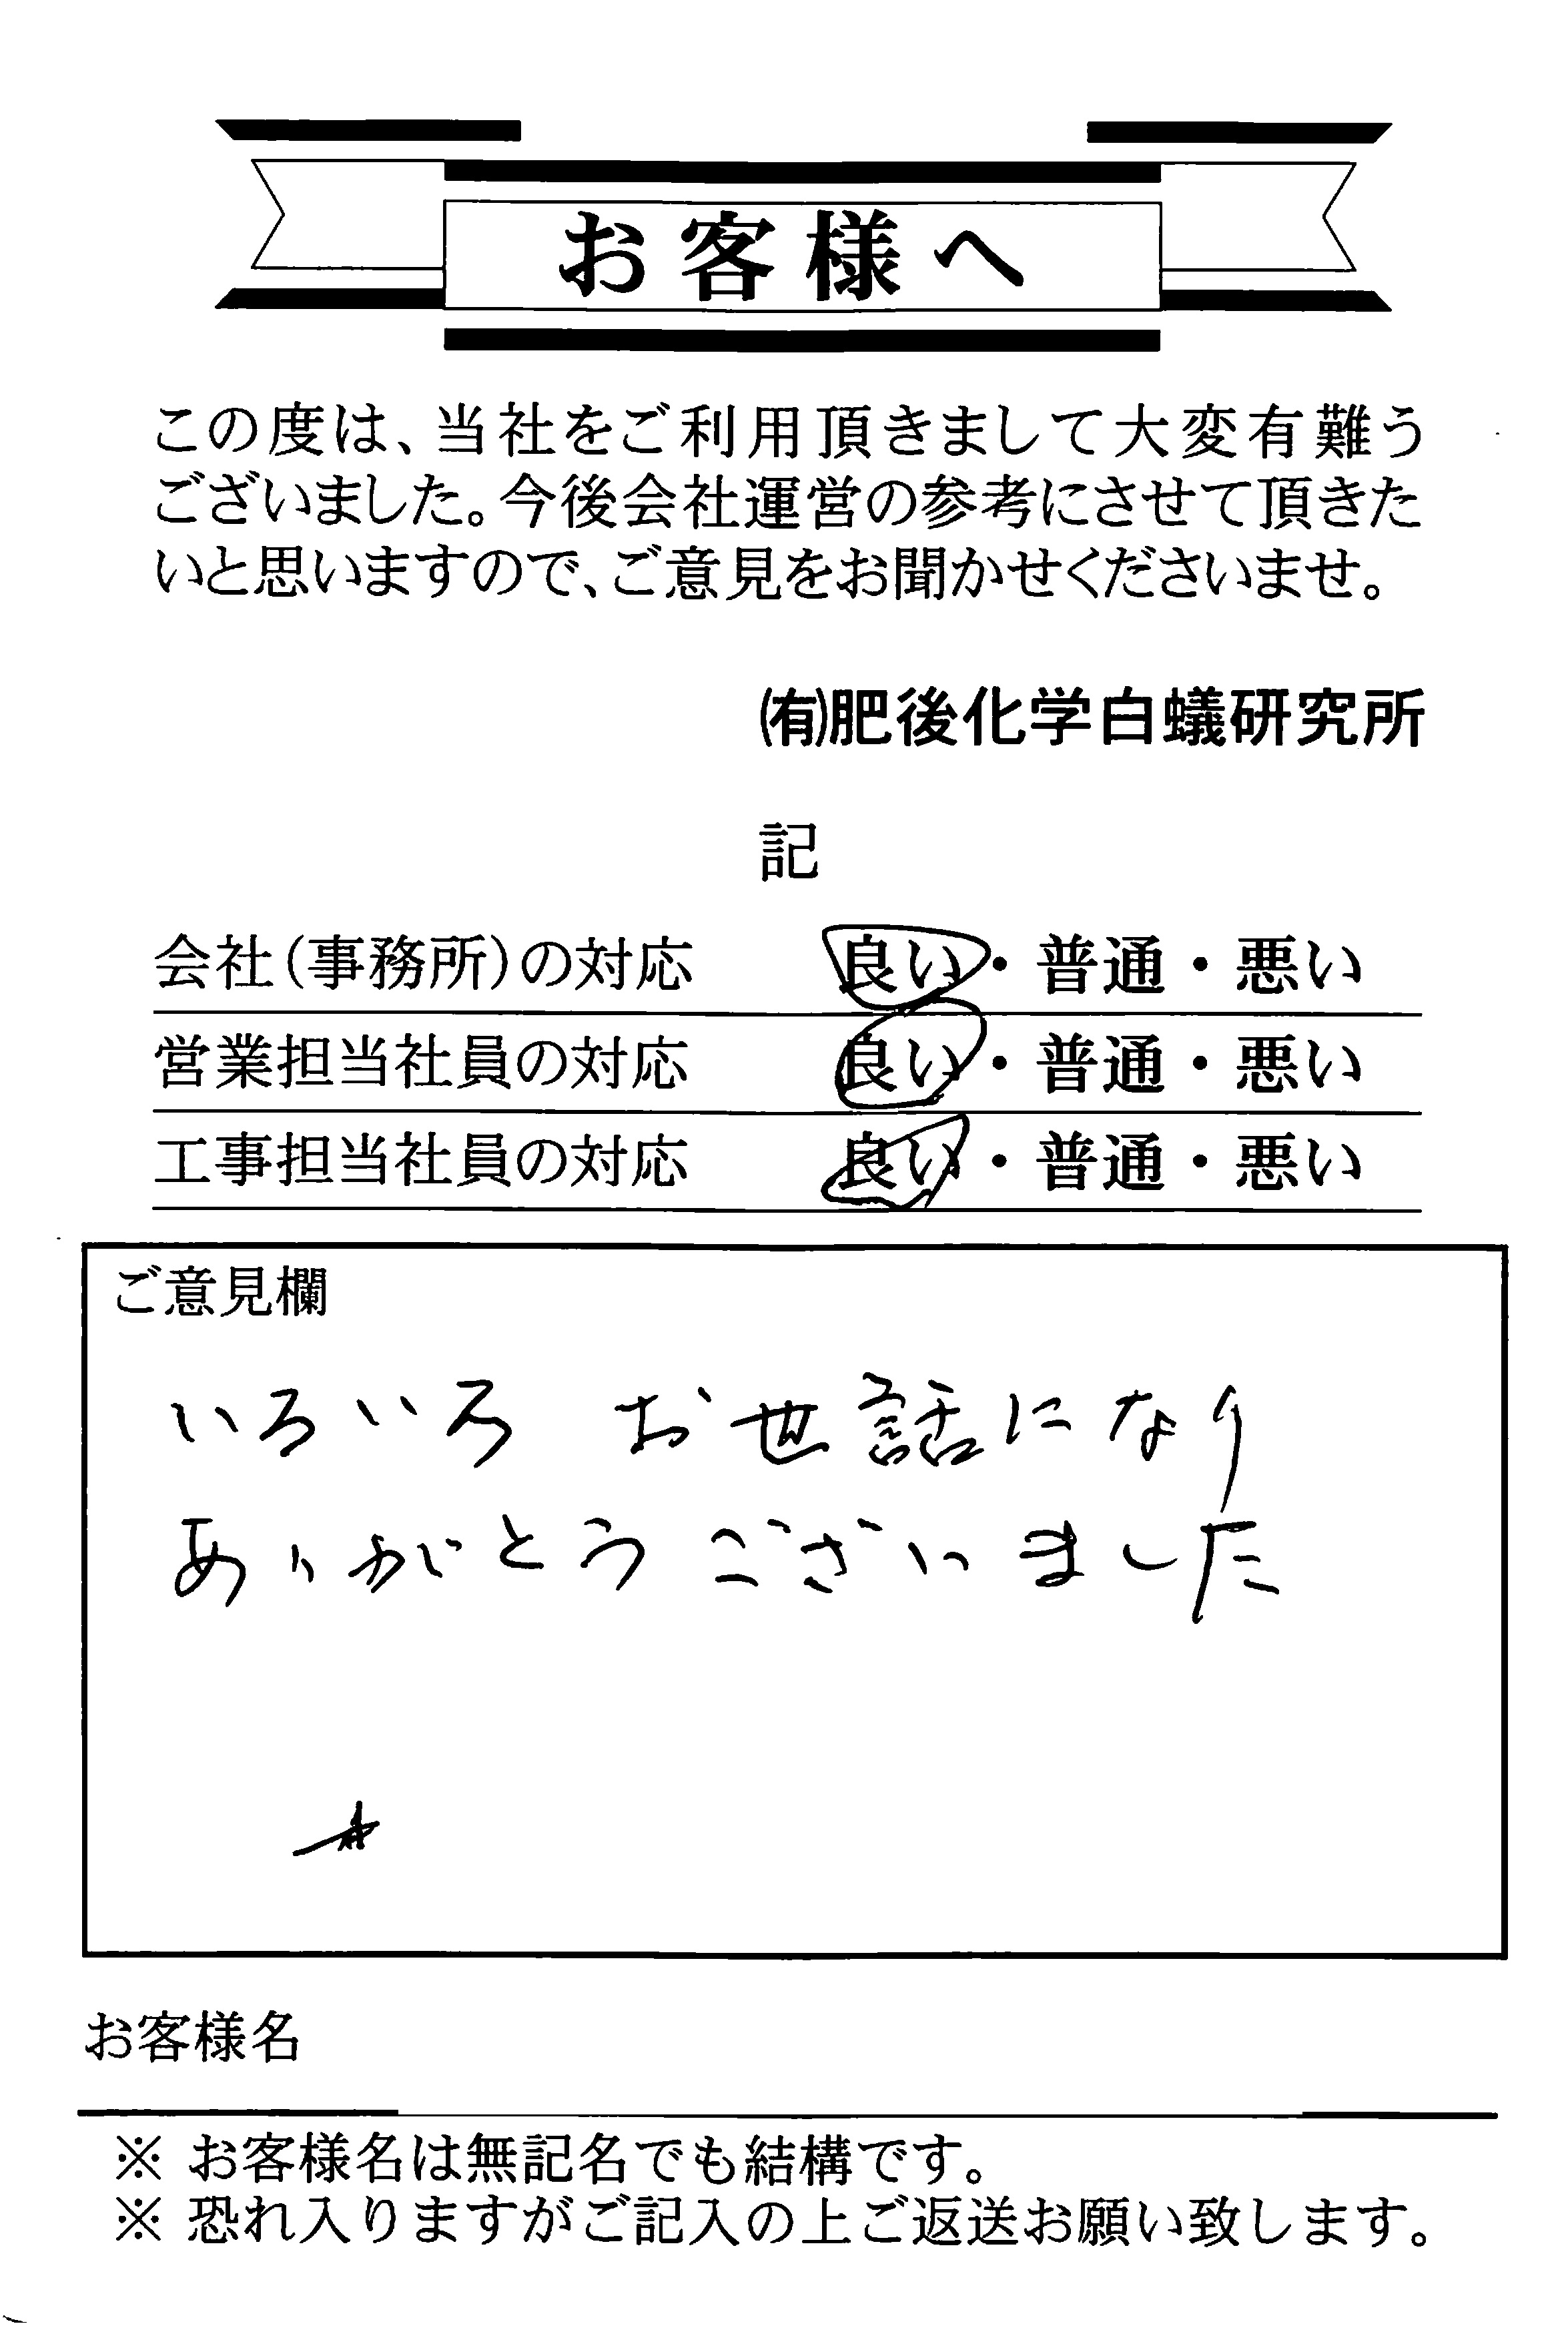 お客様へ
この度は、当社をご利用頂きまして大変有難う
ございました。今後会社運営の参考にさせて頂きた
いと思いますので、ご意見をお聞かせくださいませ。
㈲肥後化学白蟻研究所
記
会社(事務所)の対応 良い・普通・悪い
営業担当社員の対応 良い・普通・悪い
工事担当社員の対応 良い・普通・悪い
ご意見欄
いろいろ お世話になり
ありがとうございました
お客様名
※ お客様名は無記名でも結構です。
※ 恐れ入りますがご記入の上ご返送お願い致します。